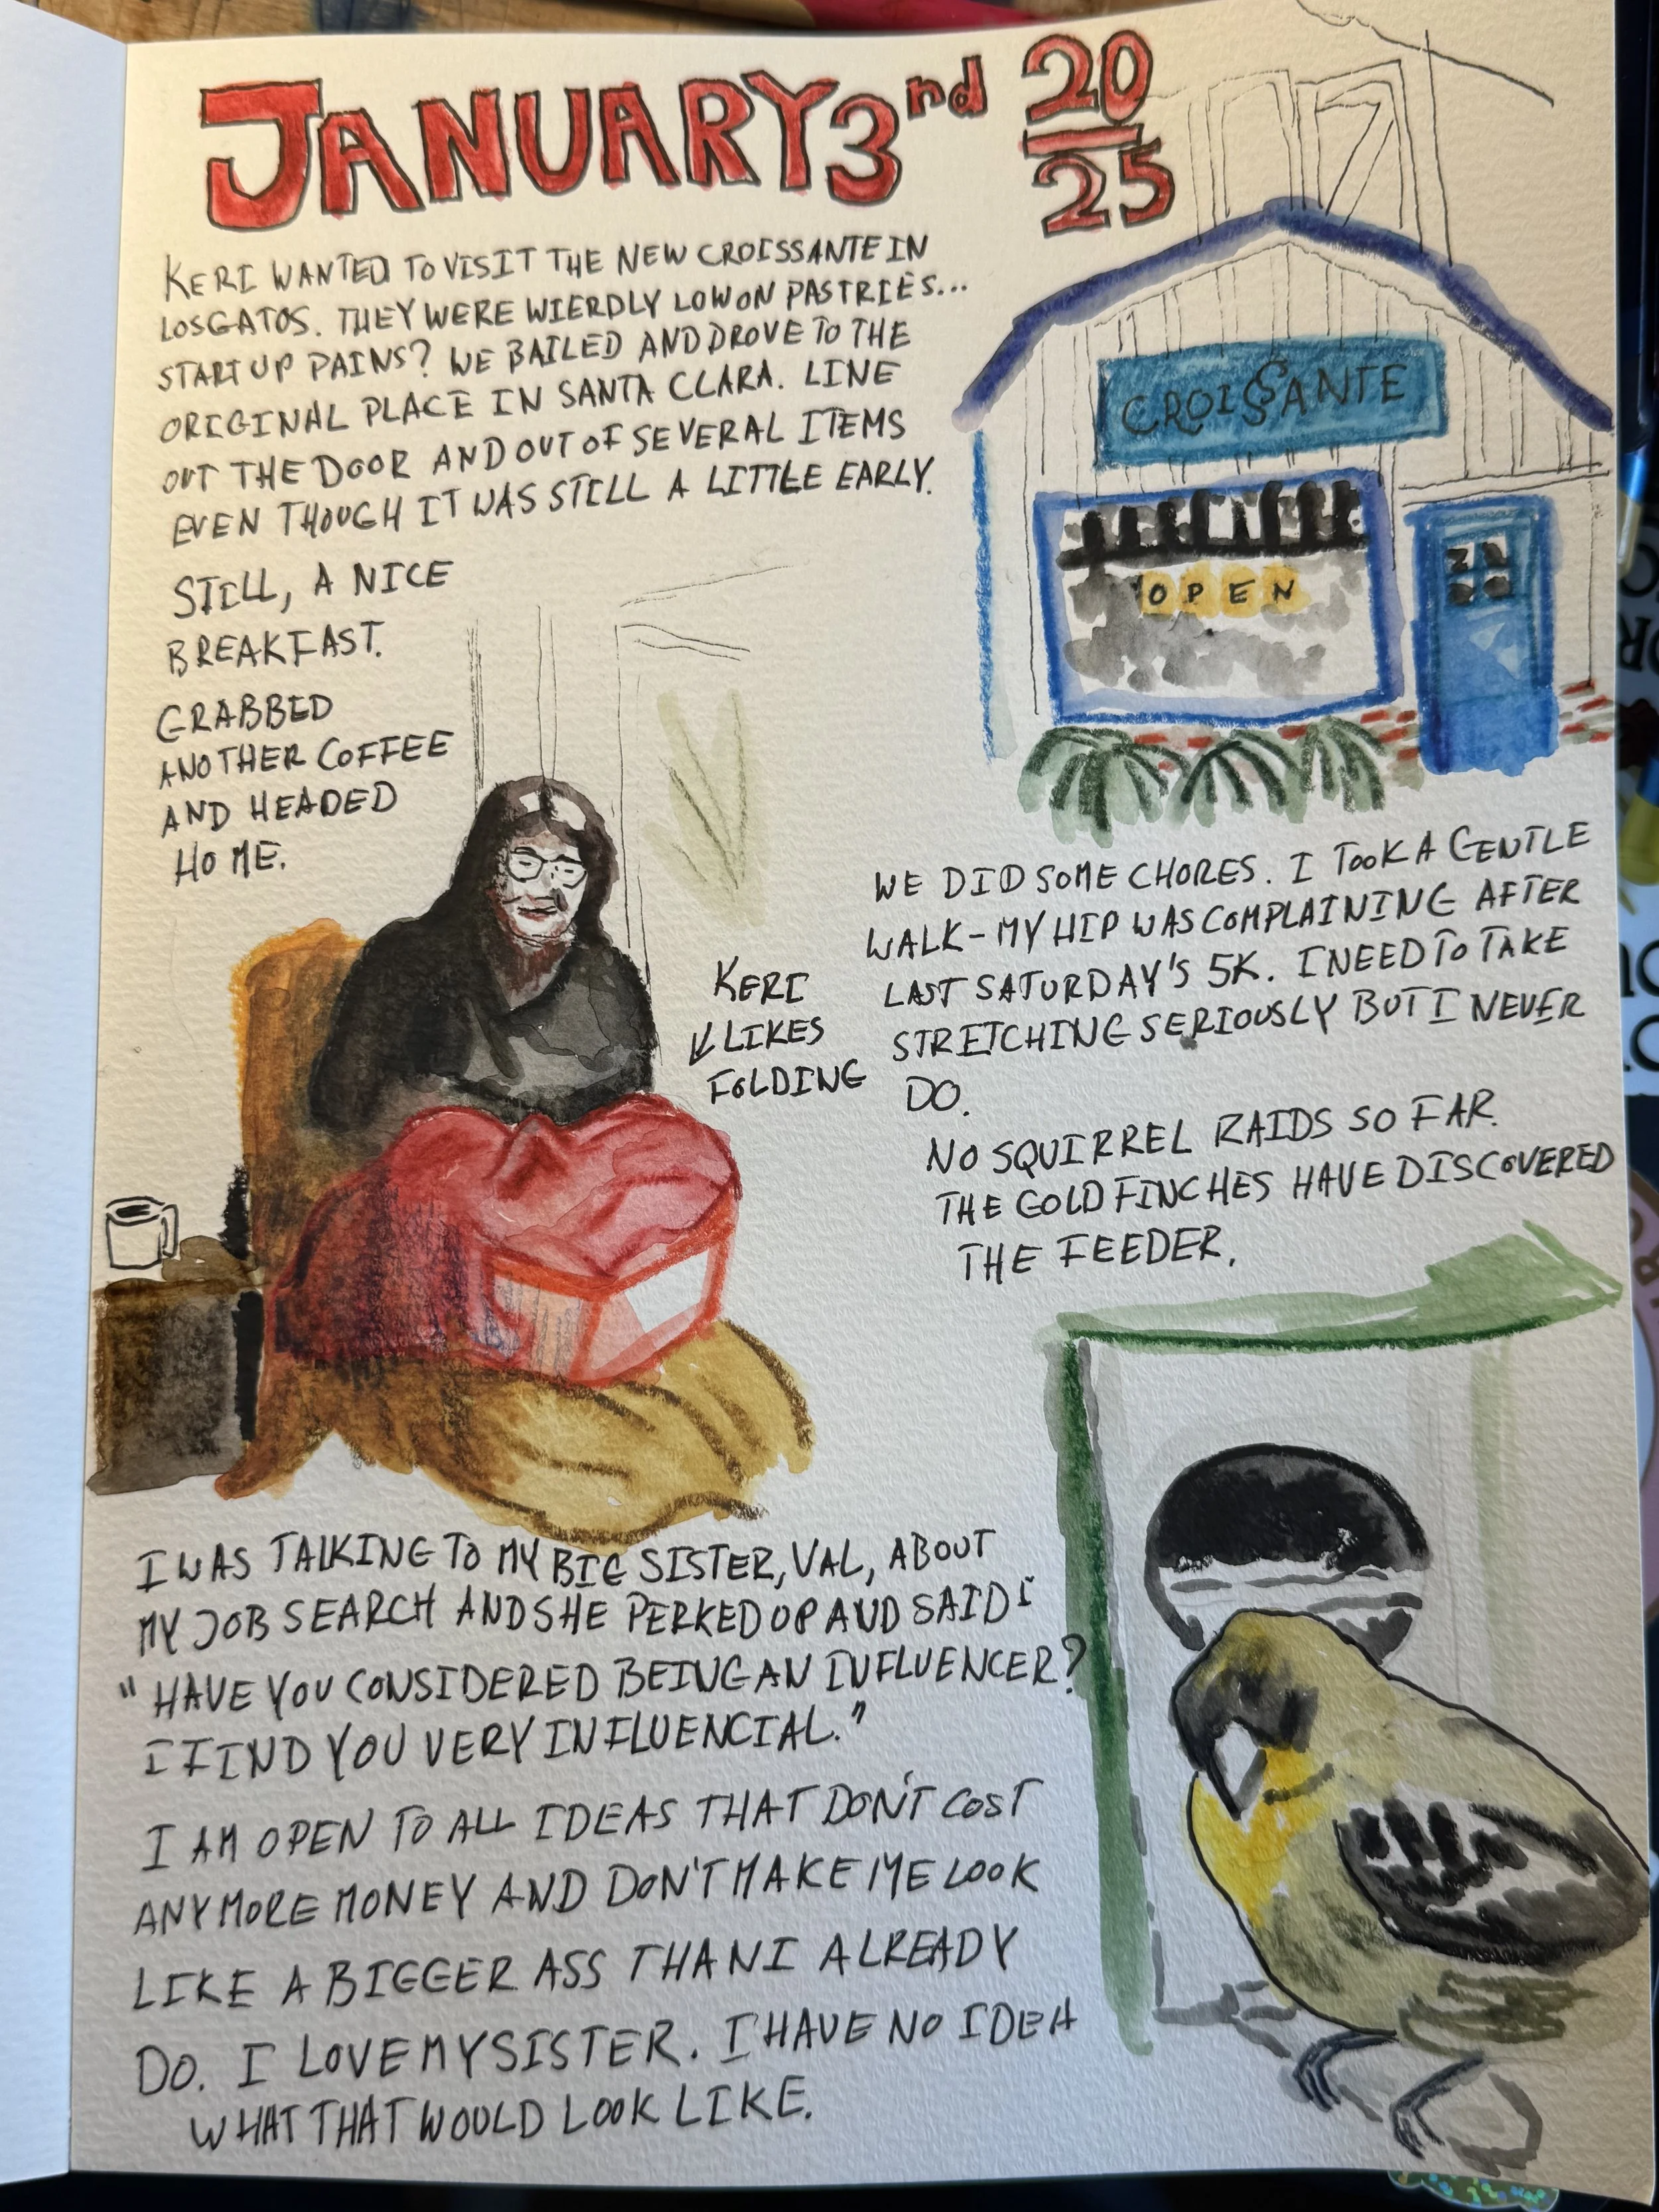 JANUARY 3rd 20
25
KERI WANTED TO VISIT THE NEW CROISSANTE IN
LOS GATOS. THEY WERE WIERDLY LOW ON PASTRIES...
START UP PAINS? WE BAILED AND DROVE TO THE
ORIGINAL PLACE IN SANTA CLARA. LINE
OUT THE DOOR AND OUT OF SEVERAL ITEMS
EVEN THOUGH IT WAS STILL A LITTLE EARLY.
STILL, A NICE
BREAKFAST.
GRABBED
ANOTHER COFFEE
AND HEADED
HOME.
CROISSANTE
OPEN
KERI
LIKES
FOLDING
WE DID SOME CHORES. I TOOK A GENTLE
WALK - MY HIP WAS COMPLAINING AFTER
LAST SATURDAY'S 5K. I NEED TO TAKE
STRETCHING SERIOUSLY BUT I NEVER
DO.
NO SQUIRREL RAIDS SO FAR.
THE GOLDFINCHES HAVE DISCOVERED
THE FEEDER.
I WAS TALKING TO MY BIG SISTER, VAL, ABOUT
MY JOB SEARCH AND SHE PERKED UP AND SAID:
"HAVE YOU CONSIDERED BEING AN INFLUENCER?
I FIND YOU VERY INFLUENCIAL."
I AM OPEN TO ALL IDEAS THAT DON'T COST
ANYMORE MONEY AND DON'T MAKE ME LOOK
LIKE A BIGGER ASS THAN I ALREADY
DO. I LOVE MY SISTER. I HAVE NO IDEA
WHAT THAT WOULD LOOK LIKE.